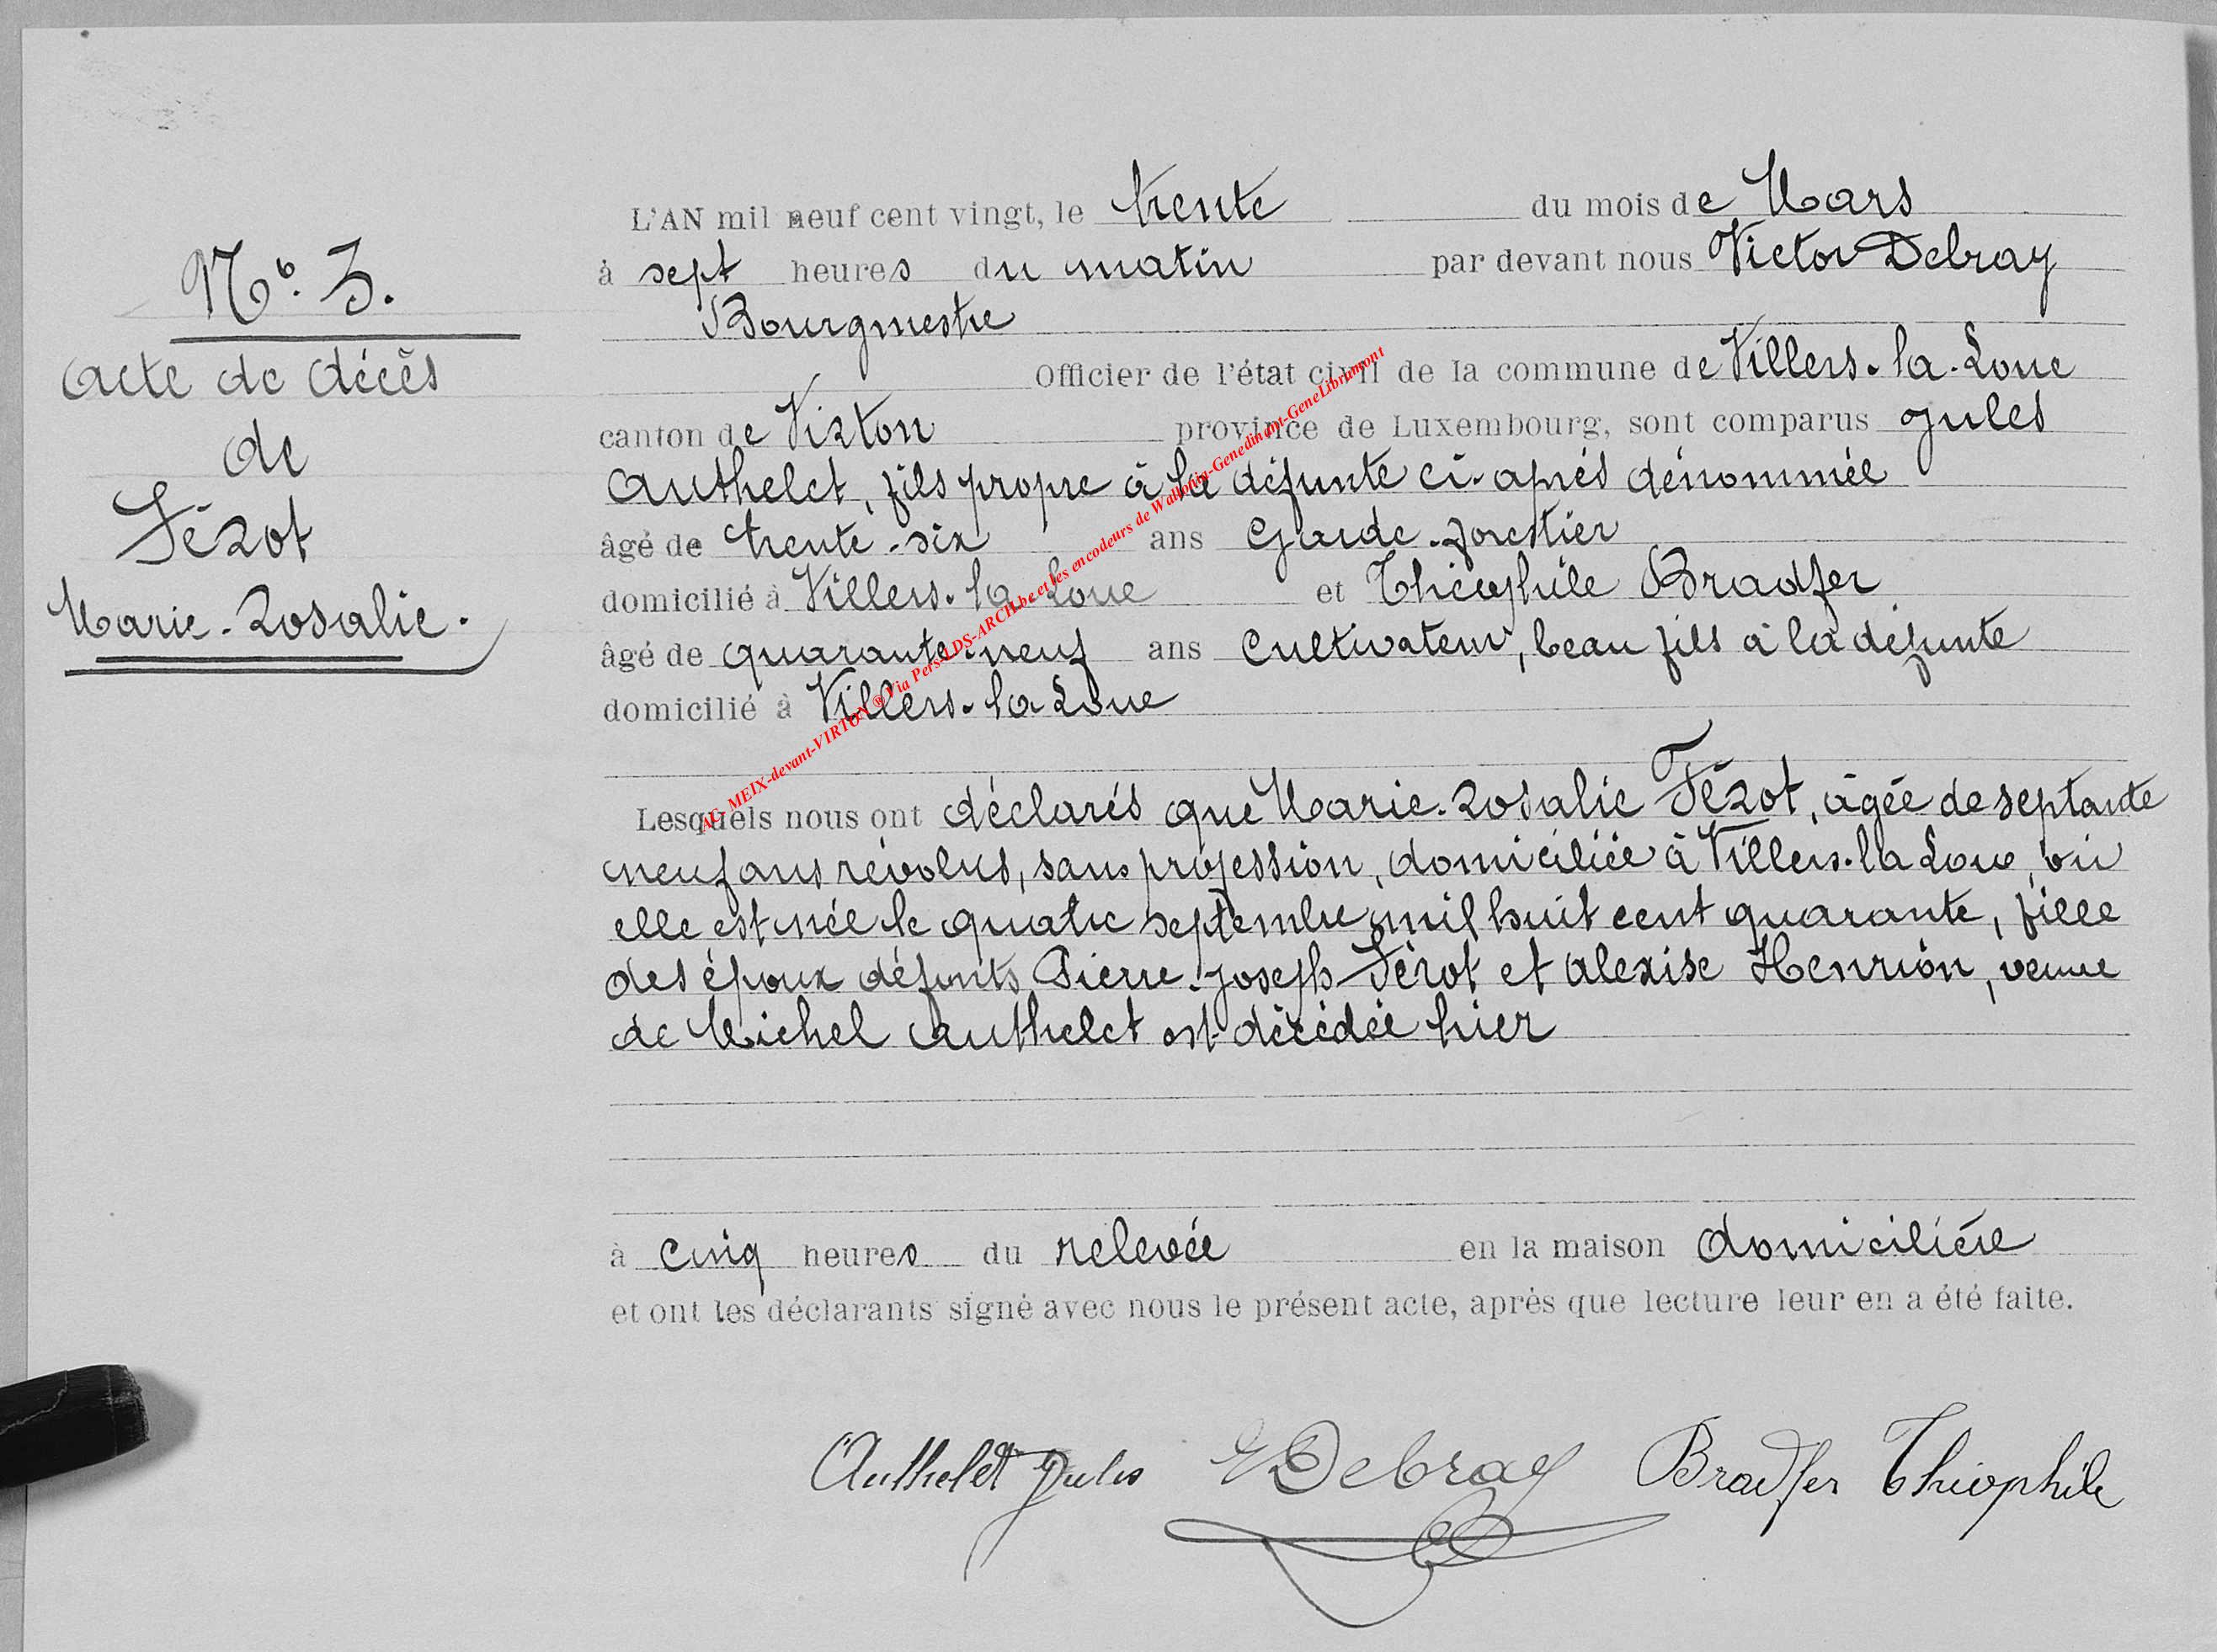 N° 3.
Acte de décès
de
Fézot
Marie-Rosalie.
L'AN mil neuf cent vingt, le trente du mois de Mars
à sept heures du matin par devant nous Victor Debray
Bourgmestre
Officier de l'état civil de la commune de Villers-la-Loue
canton de Virton province de Luxembourg, sont comparus Jules
Authelet, fils propre à la défunte ci-après dénommée
âgé de trente-six ans Garde-forestier
domicilié à Villers-la-Loue et Théophile Bradfer
âgé de quarante-neuf ans Cultivateur, beau fils à la défunte
domicilié à Villers-la-Loue
Lesquels nous ont déclarés que Marie-Rosalie Fézot, âgée de septante
neuf ans révolus, sans profession, domiciliée à Villers-la-Loue, où
elle est née le quatre septembre mil huit cent quarante, fille
des époux défunts Pierre-Joseph Fézot et Alexise Henrion, veuve
de Michel Authelet est décédée hier
à cinq heures du relevée en la maison domicilière
et ont les déclarants signé avec nous le présent acte, après que lecture leur en a été faite.
Authelet Jules VDebray Bradfer Théophile
AG- MEIX-devant-VIRTON ® Via Pers-LDS-ARCH.be et les encodeurs de Wallonia-Genedinant-GeneLibramont